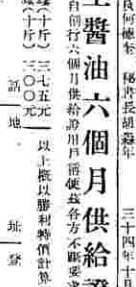 良何德奎 秘書長胡
三十四年十月
醬油六個月供給證
自創行六個月供給證用戶稱便茲各方不斷要求
(十斤)三七五元
(十斤)三〇〇元
以上概以勝利特價計算
話
地
址